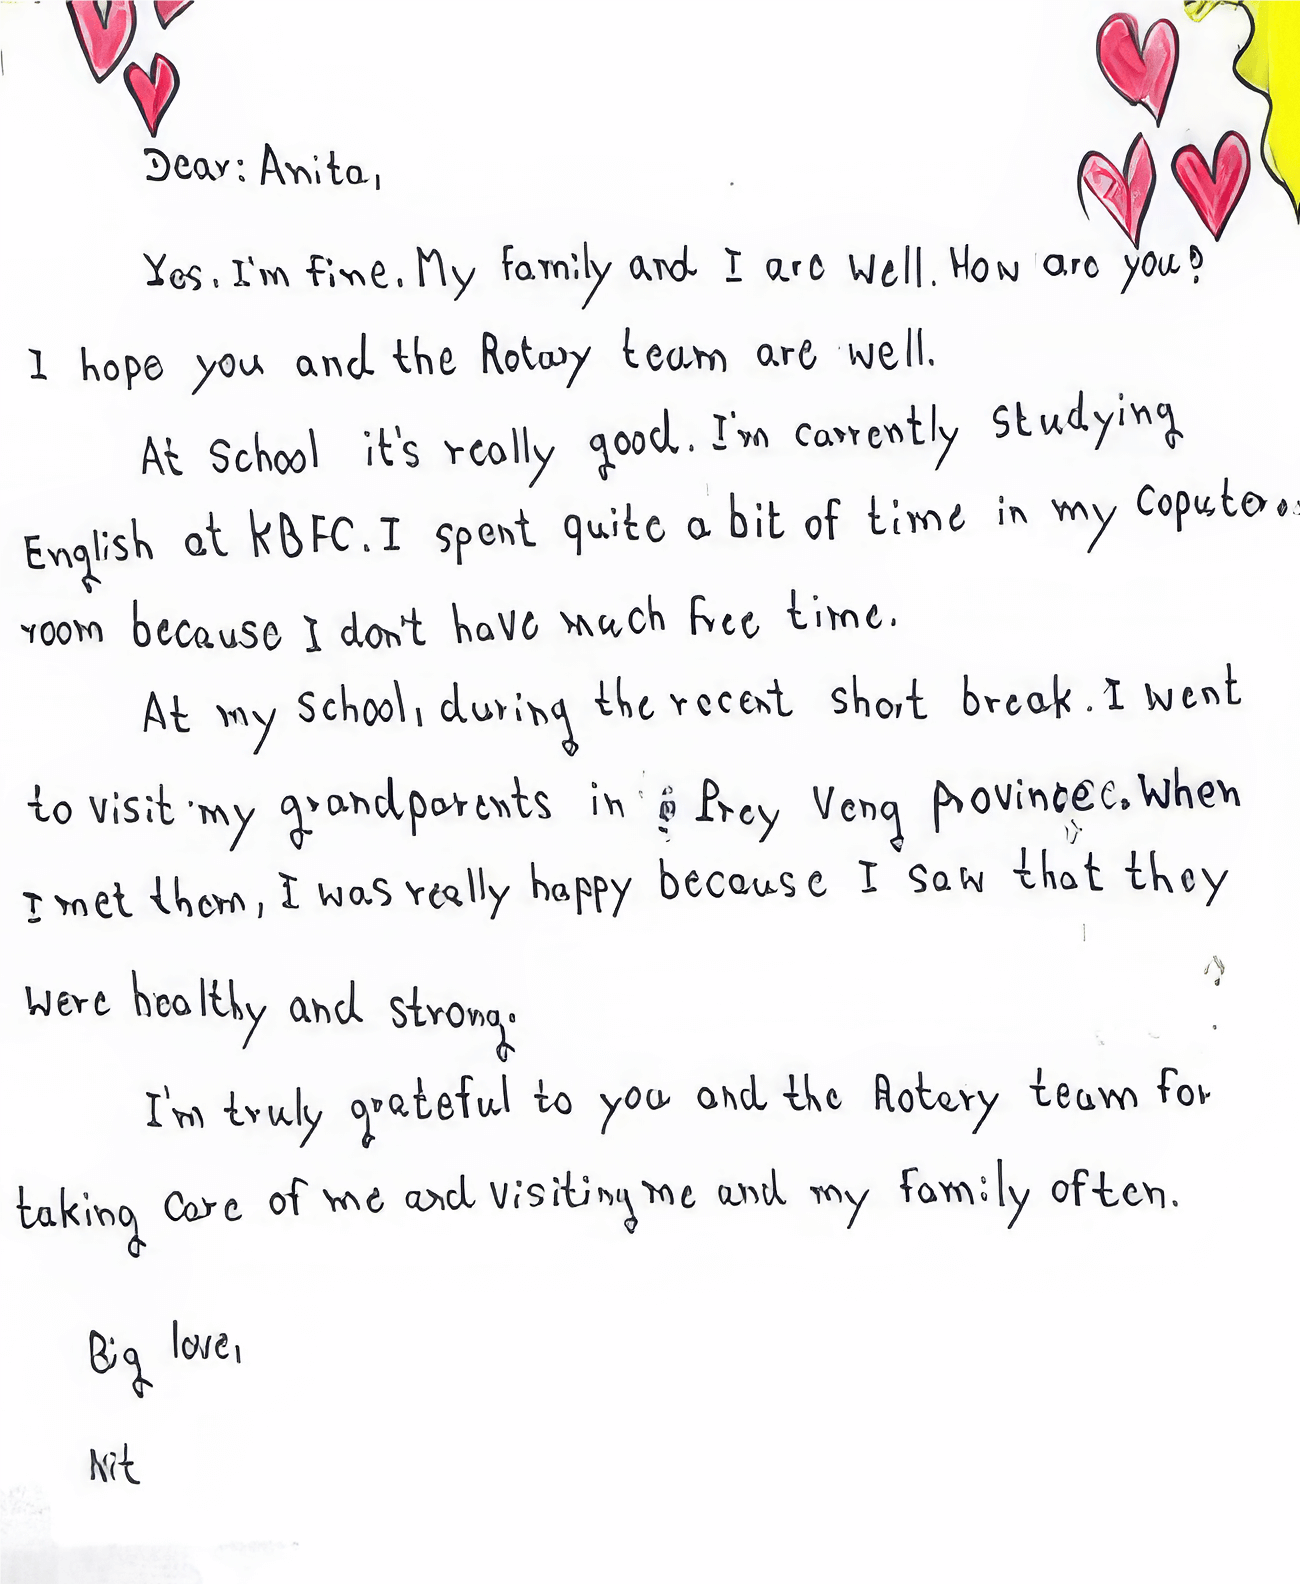 Dear: Anita,
Yes. I'm fine. My family and I are well. How are you?
I hope you and the Rotary team are well.
At School it's really good. I'm currently studying
English at KBFC. I spent quite a bit of time in my Coputer
room because I don't have much free time.
At my School, during the recent short break. I went
to visit my grandparents in Prey Veng province. When
I met them, I was really happy because I saw that they
were healthy and strong.
I'm truly grateful to you and the Rotary team for
taking Care of me and visiting me and my family often.
Big love,
Nit